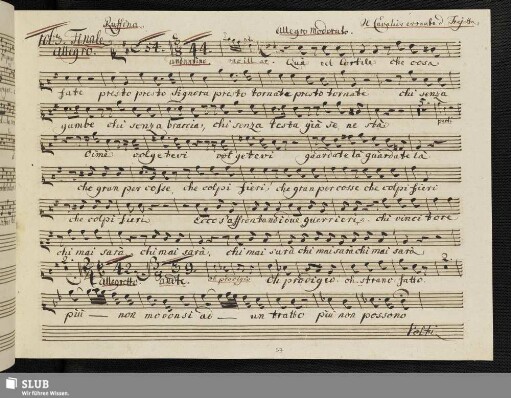 Ruffina.
Il Cavalier errante d Trajetta.
Atto 2do Finale
Allegro.
51.
andantino
44.
recit at.
Allegro Moderato.
Quà nel Cortile che cosa
fate presto presto Signora presto tornate presto tornate chi senza
gambe chi senza braccia, chi senza testa già se ne stà
5.
parti
Oimè volgetevi volgetevi guardate là guardate là
che gran percosse che colpi fieri, che gran percosse che colpi fieri
che colpi fieri Ecco s'affrontan di due guerrieri chi vincitore
chi mai sarà chi mai sarà, chi mai sarà chi mai sarà chi mai sarà
allegretto
42.
andte.
9.
Oh prodigio oh strano fatto
2.
più — non movonsi ad — un tratto più non possono
Volti
57
SLUB
Wir führen Wissen.